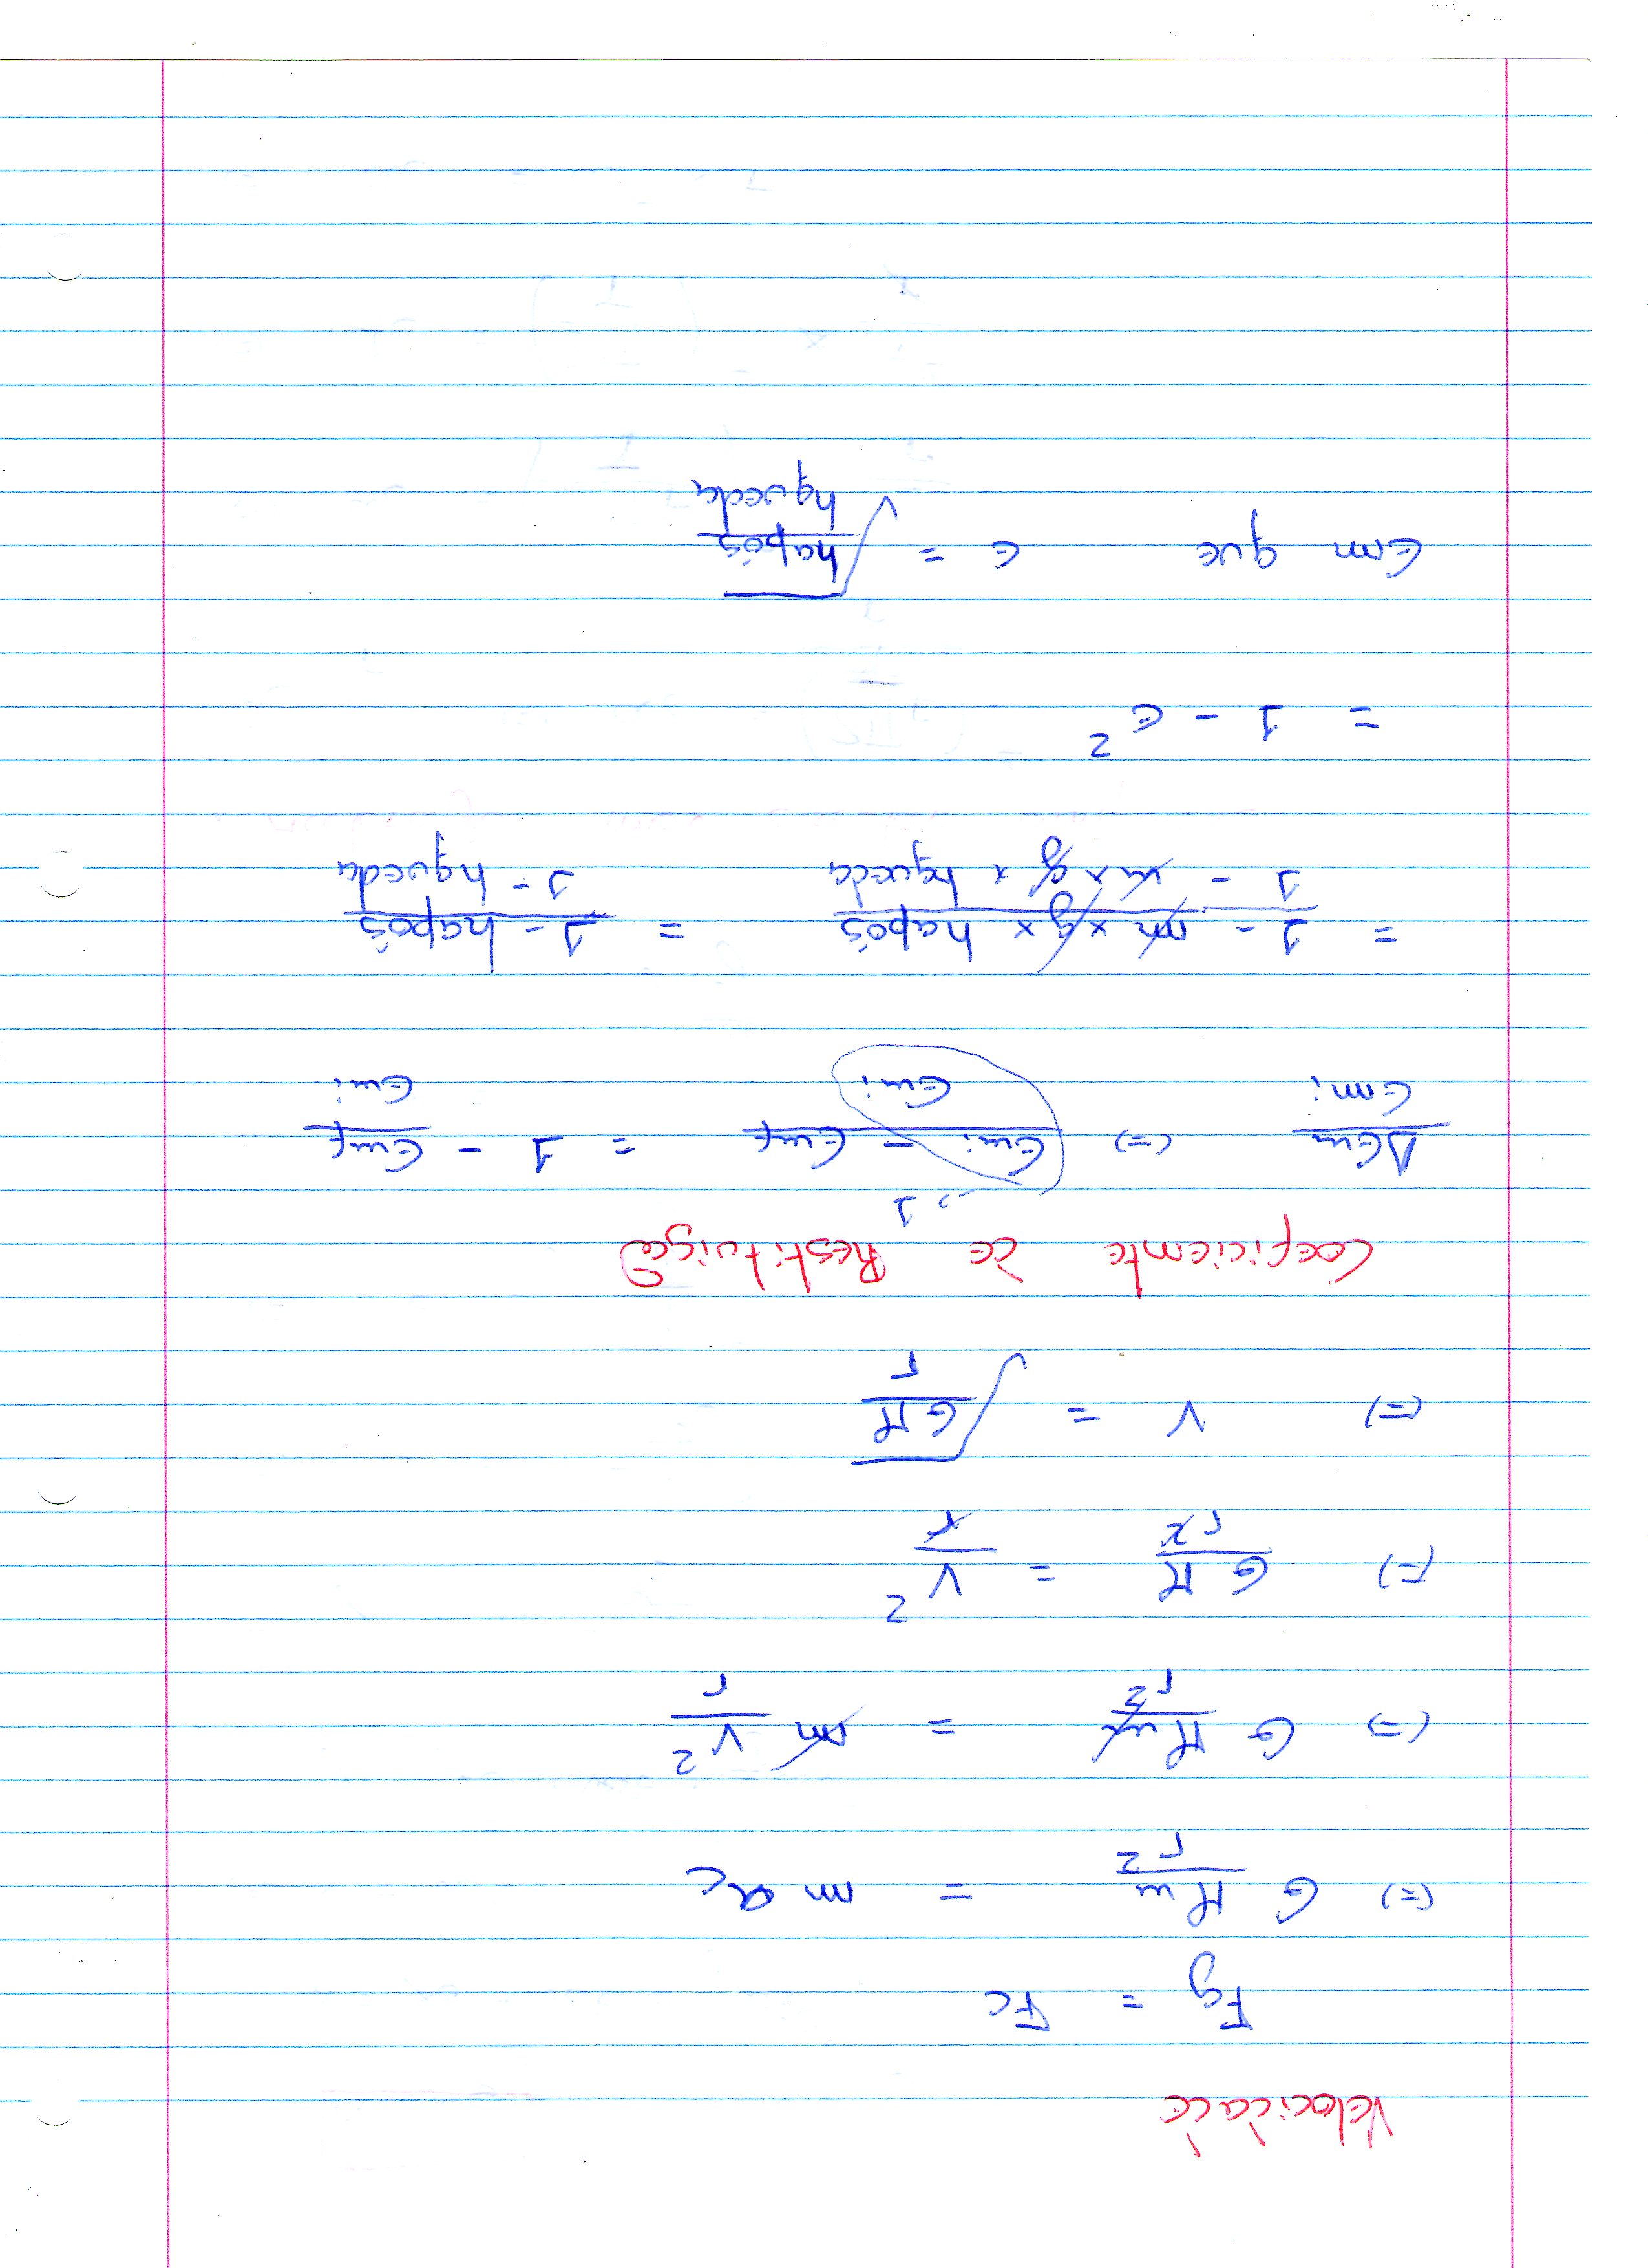 Velocidade
Fg = Fc
(=) G Mm/r² = m ac
(=) G Mm/r² = m v²/r
(=) GM/r² = v²/r
(=) v = √(GM/r)
Coeficiente de Restituição
→ 1
ΔEm/Emi (=) (Emi - Emf)/Emi = 1 - Emf/Emi
= 1 - (m × g × hapós)/(m × g × hqueda) = 1 - hapós/1 - hqueda
= 1 - e²
Em que e = √(hapós/hqueda)